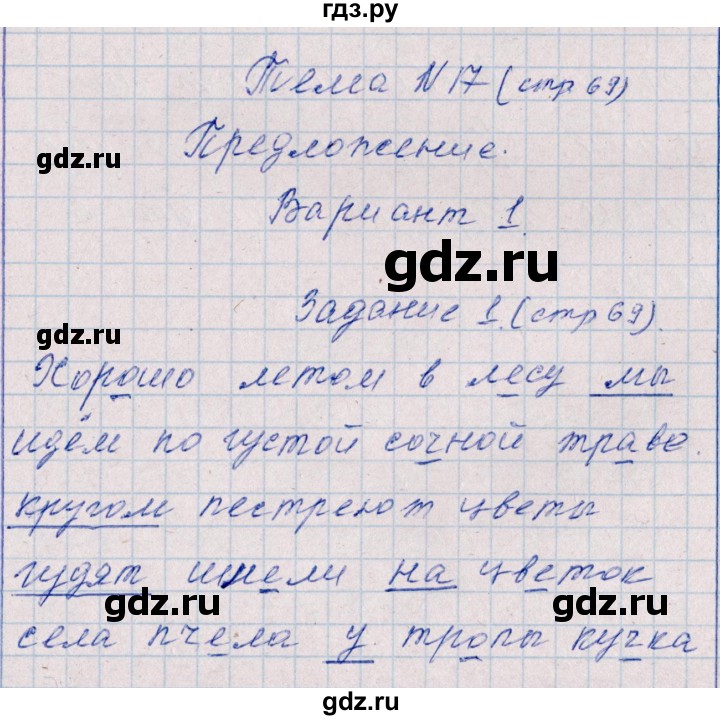 гдз.ру
Тема N 17 (стр 69)
Предложение.
gdz.ru
Вариант 1.
gdz.ru
gdz.ru
Задание 1. (стр 69).
Хорошо летом в лесу мы
идём по густой сочной траве.
gdz.ru
gdz.ru
кругом пестреют цветы
гудят шмели на цветок
gdz.ru
gdz.ru
села пчела у тропы кучка
gdz.ru